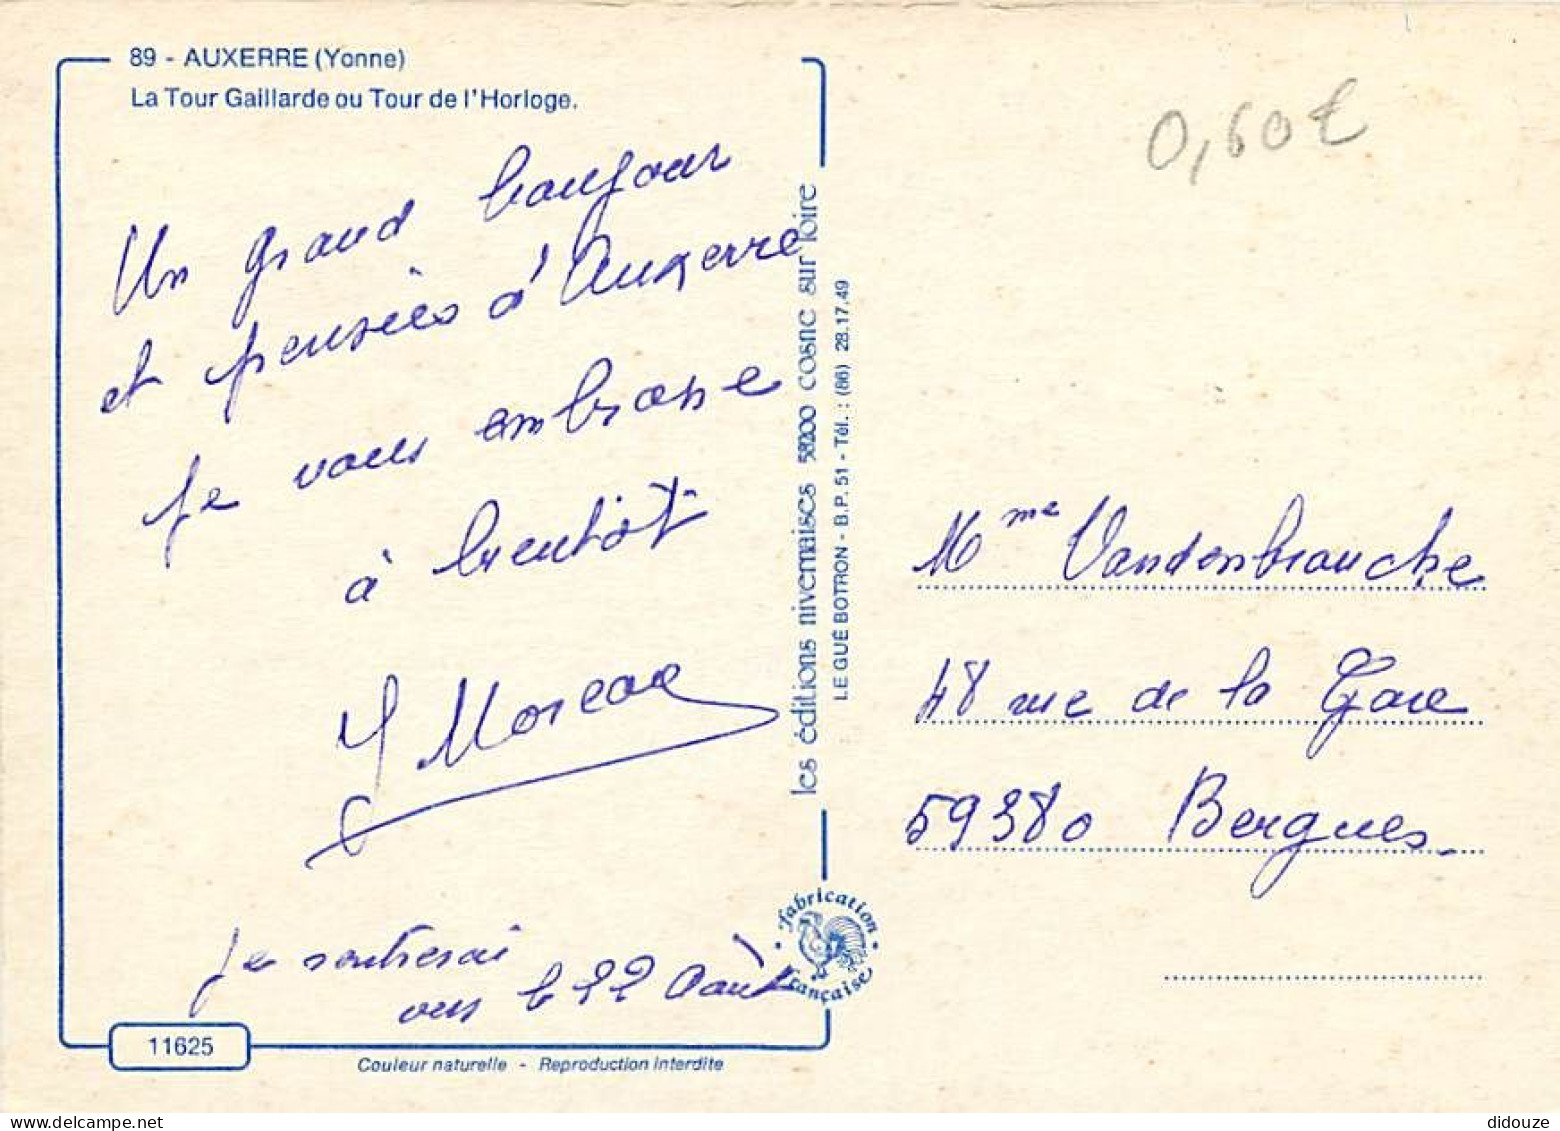 89 - AUXERRE (Yonne)
La Tour Gaillarde ou Tour de l'Horloge.
0,60€
Un grand bonjour
et pensées d'Auxerre
je vous embrasse
à bientôt
J Moreau
Je rentrerai
vers le 22 Août
11625
Couleur naturelle - Reproduction interdite
les éditions nivernaises 58200 cosne sur loire
LE GUÉ BOTRON - B.P. 51 - Tél. : (86) 28.17.49
fabrication
française
Mme Vandenbrouche
48 rue de la Gare
59380 Bergues.
didouze
delcampe.net